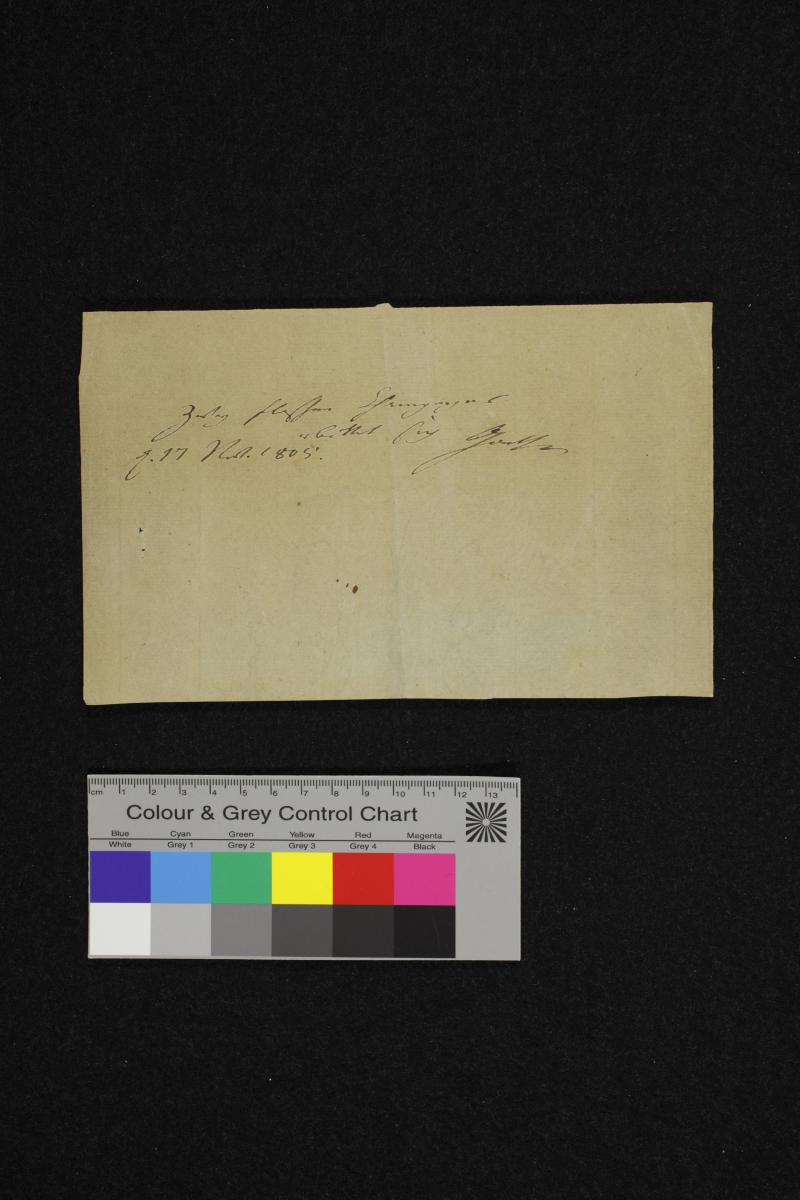 Zwey Flaschen Champagner
erbittet sich Goethe
d. 17 Nov. 1805.
cm 1 2 3 4 5 6 7 8 9 10 11 12 13
Colour & Grey Control Chart
Blue Cyan Green Yellow Red Magenta
White Grey 1 Grey 2 Grey 3 Grey 4 Black